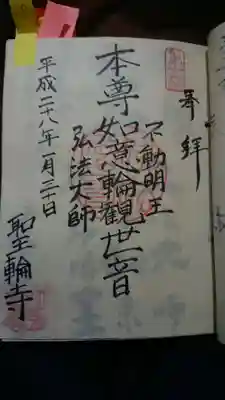 奉拝
不動明王
本尊如意輪観世音
弘法大師
平成二十八年一月三十日
聖輪寺